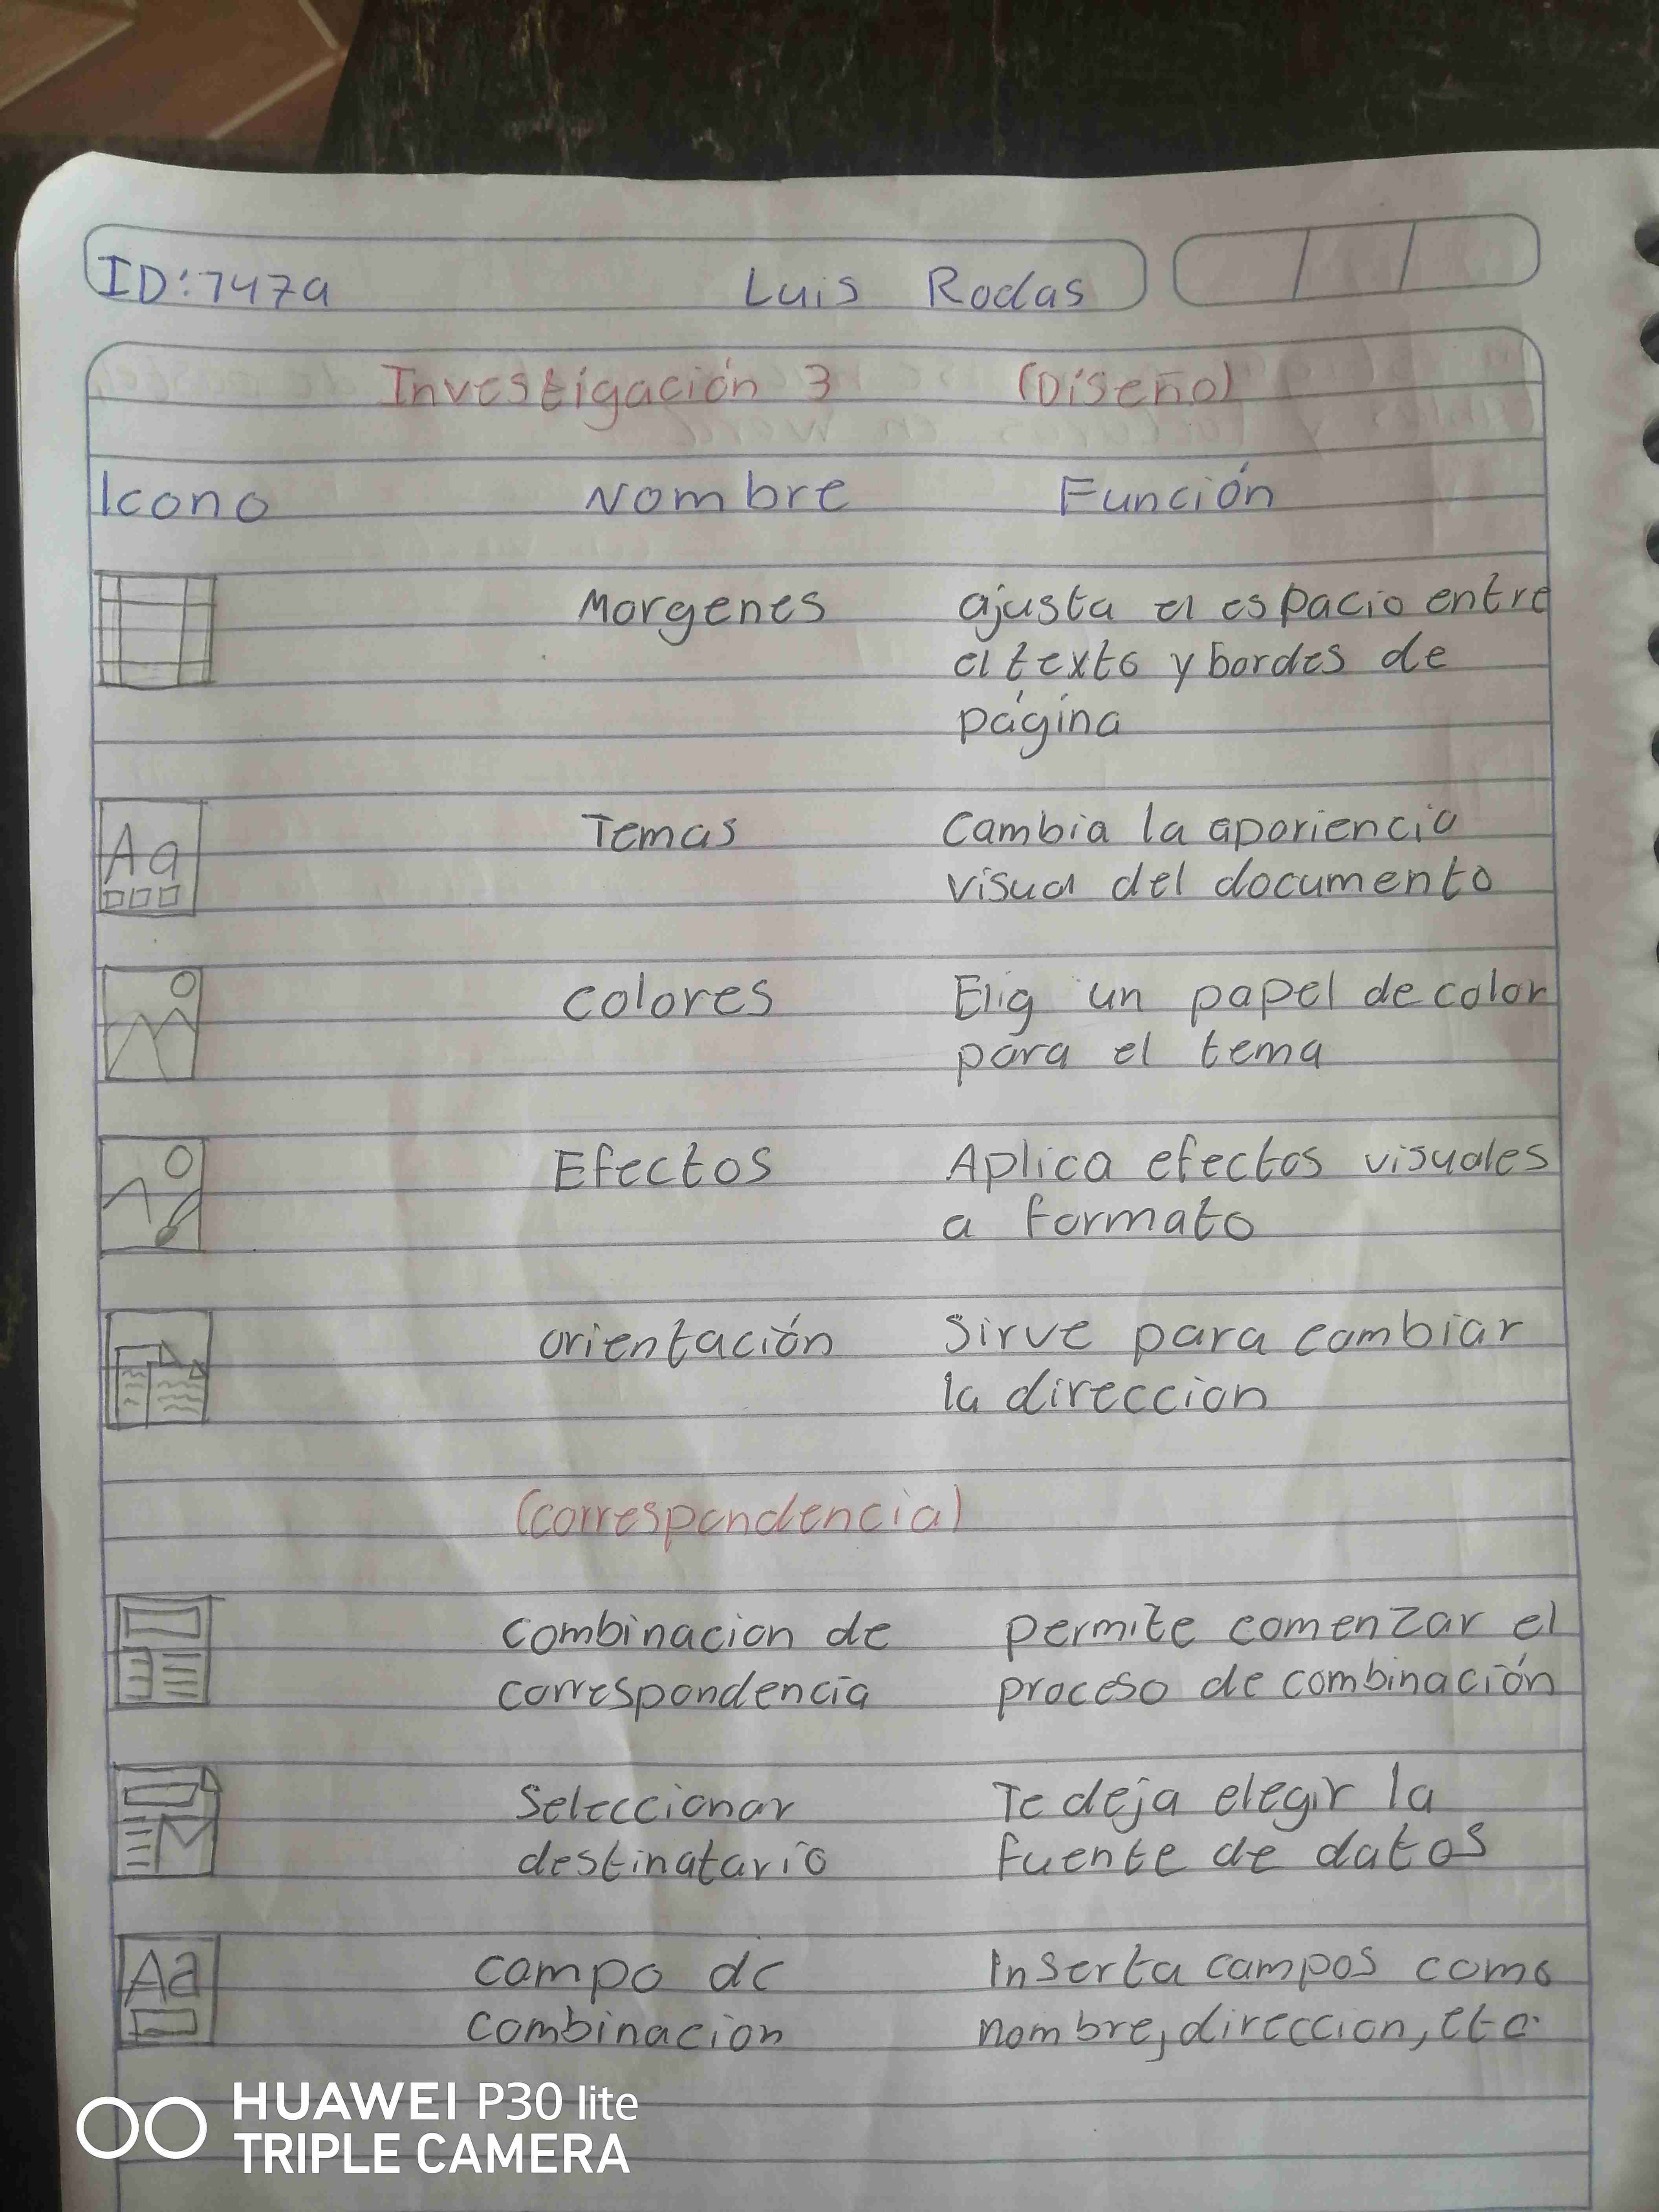 ID:7479 Luis Rodas
Investigación 3 (Diseño)
Icono Nombre Función
Morgenes ajusta el espacio entre
el texto y bordes de
página
Aa Temas Cambia la apariencia
visual del documento
Colores Elig un papel de color
para el tema
Efectos Aplica efectos visuales
a formato
orientación Sirve para cambiar
la direccion
(correspondencia)
Combinacion de permite comenzar el
correspondencia proceso de combinación
Seleccionar Te deja elegir la
destinatario fuente de datos
Aa campo de Inserta campos como
combinacion nombre, direccion, etc.
HUAWEI P30 lite
TRIPLE CAMERA